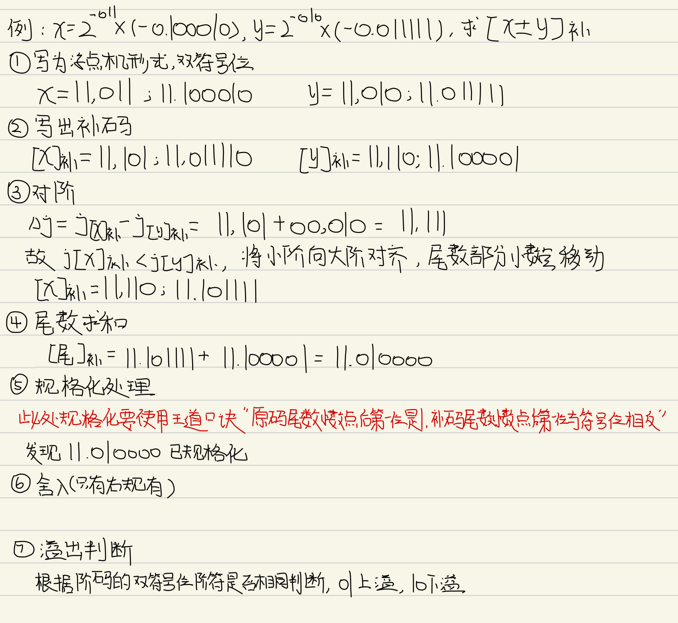 例: x=2^-011×(-0.100010), y=2^-010×(-0.011111), 求[x±y]补
①写为浮点机形式,双符号位
x=11,011;11.100010 y=11,010;11.011111
②写出补码
[x]补=11,101;11.011110 [y]补=11,110;11.100001
③对阶
Δj=j[x]补-j[y]补=11,101+00,010=11,111
故j[x]补<j[y]补,将小阶向大阶对齐,尾数部分小数点移动
[x]补=11,110;11.101111
④尾数求和
[尾]补=11.101111+11.100001=11.010000
⑤规格化处理
此处规格化要使用王道口诀"原码尾数小数点后第一位是1,补码尾数小数点后第一位与符号位相反"
发现11.010000已规格化
⑥舍入(只有右规有)
⑦溢出判断
根据阶码的双符号位阶符是否相同判断,01上溢,10下溢